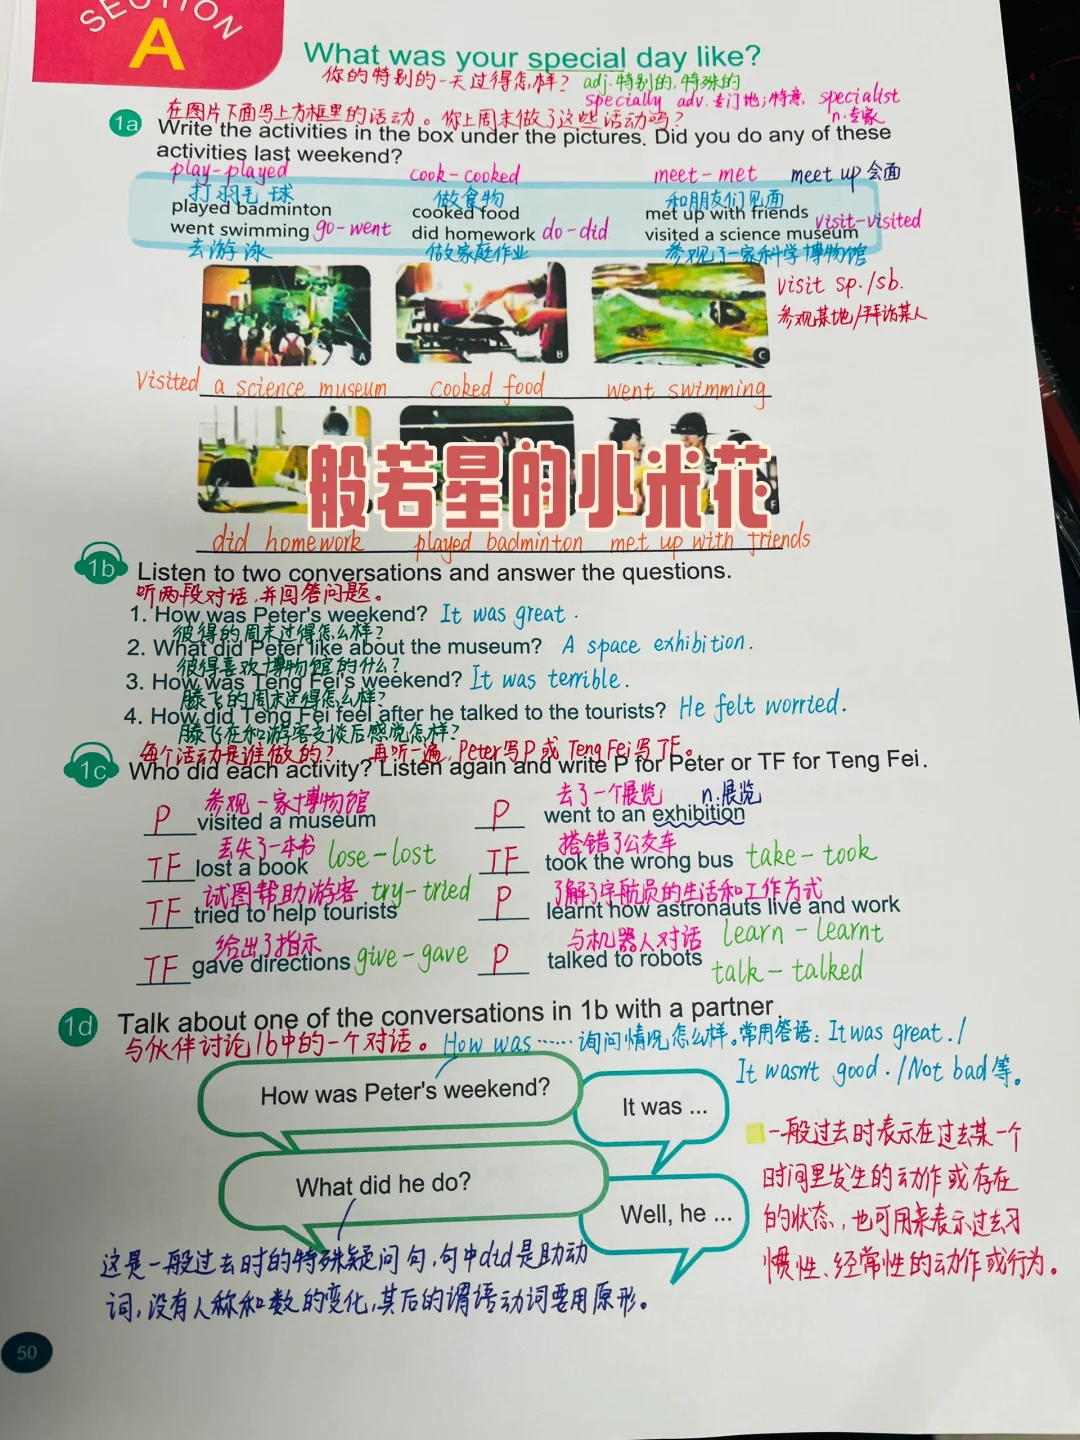 SECTION
A
What was your special day like?
你的特别的一天过得怎样? adj.特别的,特殊的
specially adv.专门地;特意 specialist
n.专家
在图片下面写上方框里的活动。你上周末做了这些活动吗?
1a Write the activities in the box under the pictures. Did you do any of these
activities last weekend?
play-played cook-cooked meet-met meet up 会面
打羽毛球 做食物 和朋友们见面
played badminton cooked food met up with friends
went swimming go-went did homework do-did visited a science museum visit-visited
去游泳 做家庭作业 参观了一家科学博物馆
visit sp./sb.
参观某地/拜访某人
A B C
Visited a science museum cooked food went swimming
般若星的小米花
F
did homework played badminton met up with friends
1b Listen to two conversations and answer the questions.
听两段对话,并回答问题。
1. How was Peter's weekend? It was great.
彼得的周末过得怎么样?
2. What did Peter like about the museum? A space exhibition.
彼得喜欢博物馆的什么?
3. How was Teng Fei's weekend? It was terrible.
滕飞的周末过得怎么样?
4. How did Teng Fei feel after he talked to the tourists? He felt worried.
滕飞在和游客交谈后感觉怎样?
每个活动是谁做的? 再听一遍,Peter写P或Teng Fei写TF。
1c Who did each activity? Listen again and write P for Peter or TF for Teng Fei.
参观一家博物馆 去了一个展览 n.展览
P visited a museum P went to an exhibition
丢失了一本书 搭错了公交车
TF lost a book lose-lost TF took the wrong bus take-took
试图帮助游客 try-tried 了解了宇航员的生活和工作方式
TF tried to help tourists P learnt how astronauts live and work
给出了指示 与机器人对话 learn-learnt
TF gave directions give-gave P talked to robots talk-talked
1d Talk about one of the conversations in 1b with a partner.
与伙伴讨论1b中的一个对话。 How was……询问情况怎么样。常用答语:It was great./
It wasn't good./Not bad等。
How was Peter's weekend?
It was ...
What did he do?
Well, he ...
一般过去时表示在过去某一个
时间里发生的动作或存在
的状态,也可用来表示过去习
惯性、经常性的动作或行为。
这是一般过去时的特殊疑问句,句中did是助动
词,没有人称和数的变化,其后的谓语动词要用原形。
50